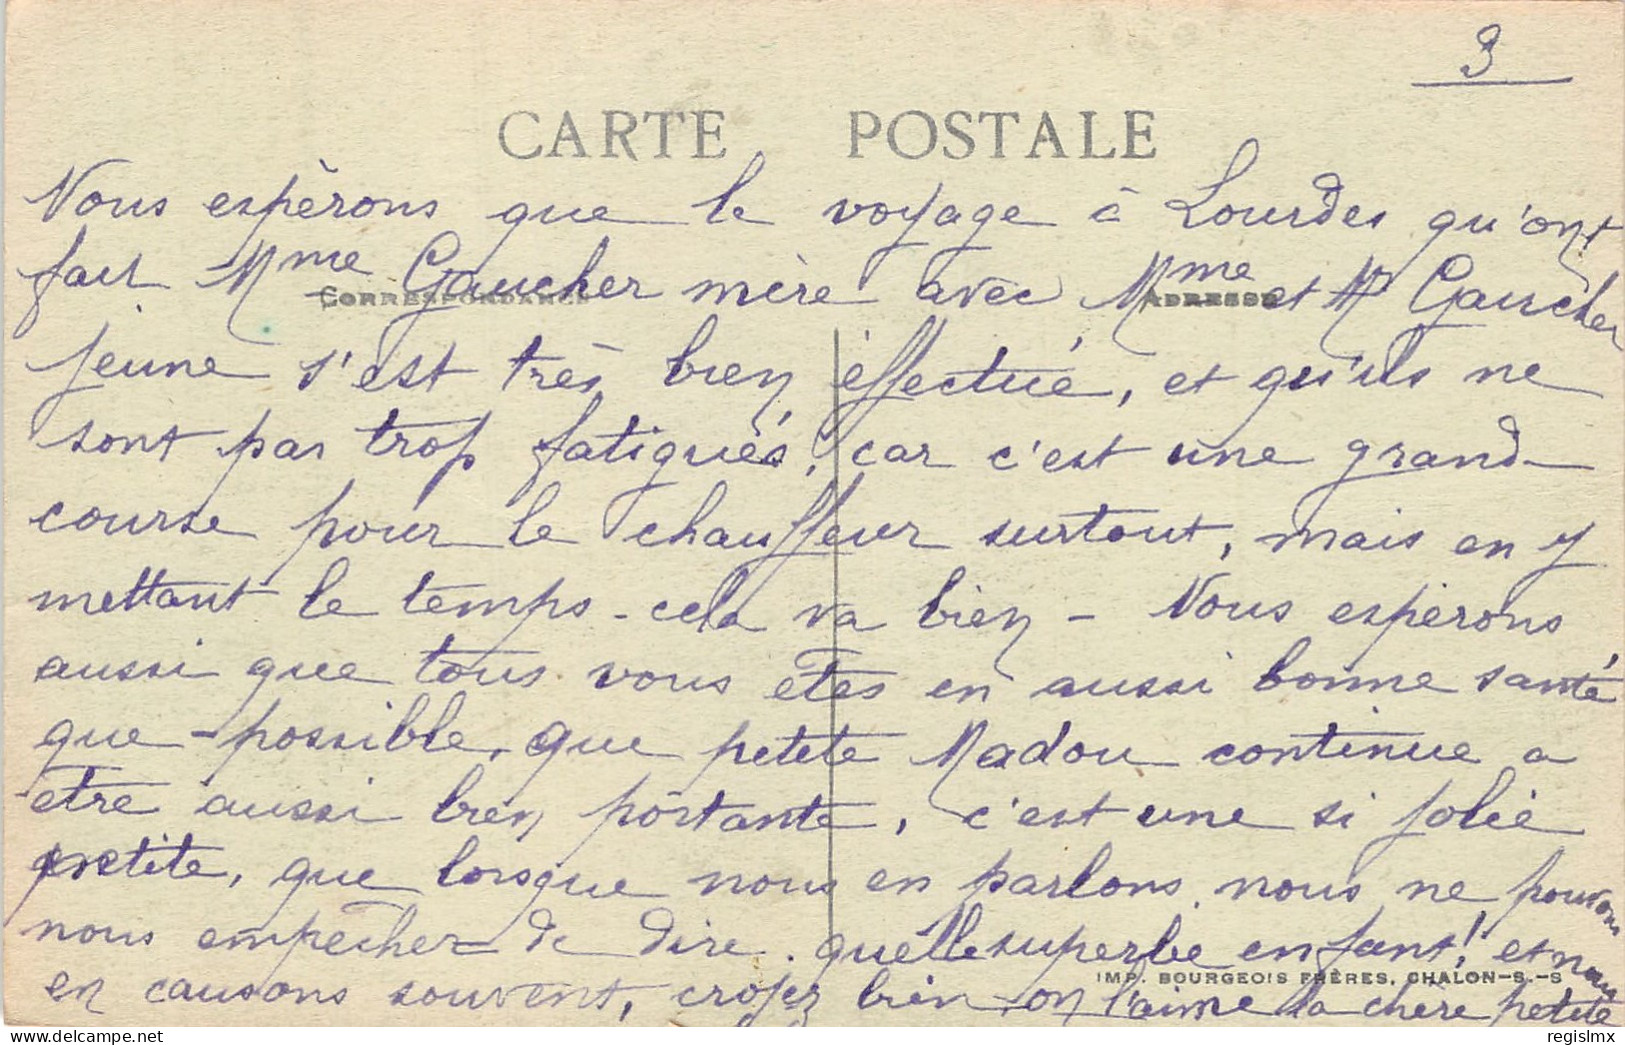 3
CARTE POSTALE
Nous espèrons que le voyage à Lourdes qu'ont
fait Mme Gaucher mère avec Mme et Mr Gaucher
CORRESPONDANCE ADRESSE
jeune s'est très bien éffectué, et qu'ils ne
sont pas trop fatigués, car c'est une grand
course pour le chauffeur surtout, mais en y
mettant le temps - cela va bien - Nous espèrons
aussi que tous vous êtes en aussi bonne santé
que possible, que petite Madou continue a
être aussi bien portante, c'est une si jolie
petite, que lorsque nous en parlons, nous ne pouvons
nous empêcher de dire. quelle superbe enfant! et nous
IMP. BOURGEOIS FRÈRES, CHALON-S.-S
en causons souvent, croyez bien on l'aime la chère petite
www.delcampe.net
regislmx